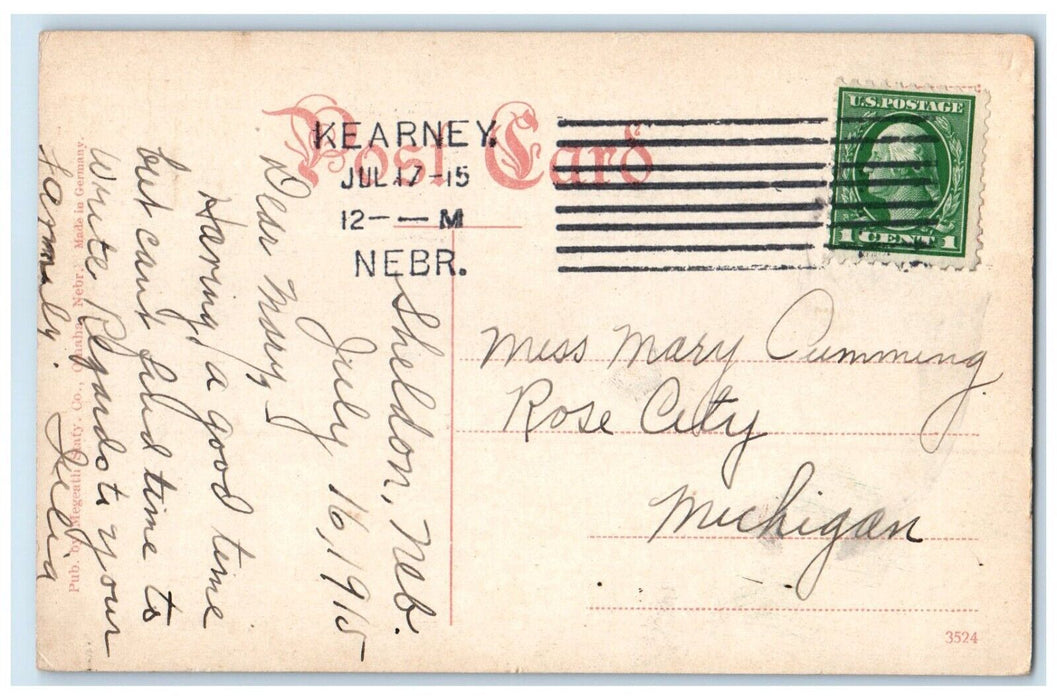 Post Card
KEARNEY.
JUL 17-15
12 — — M
NEBR.
U.S. POSTAGE
1 CENT 1
Sheldon, Neb.
July 16, 1915
Dear Mary,
Having a good time
but cant find time to
write Regards to your
family.
Miss Mary Cumming
Rose City
Michigan
Pub. by Megeath Staty Co., Omaha, Nebr. Made in Germany.
3524